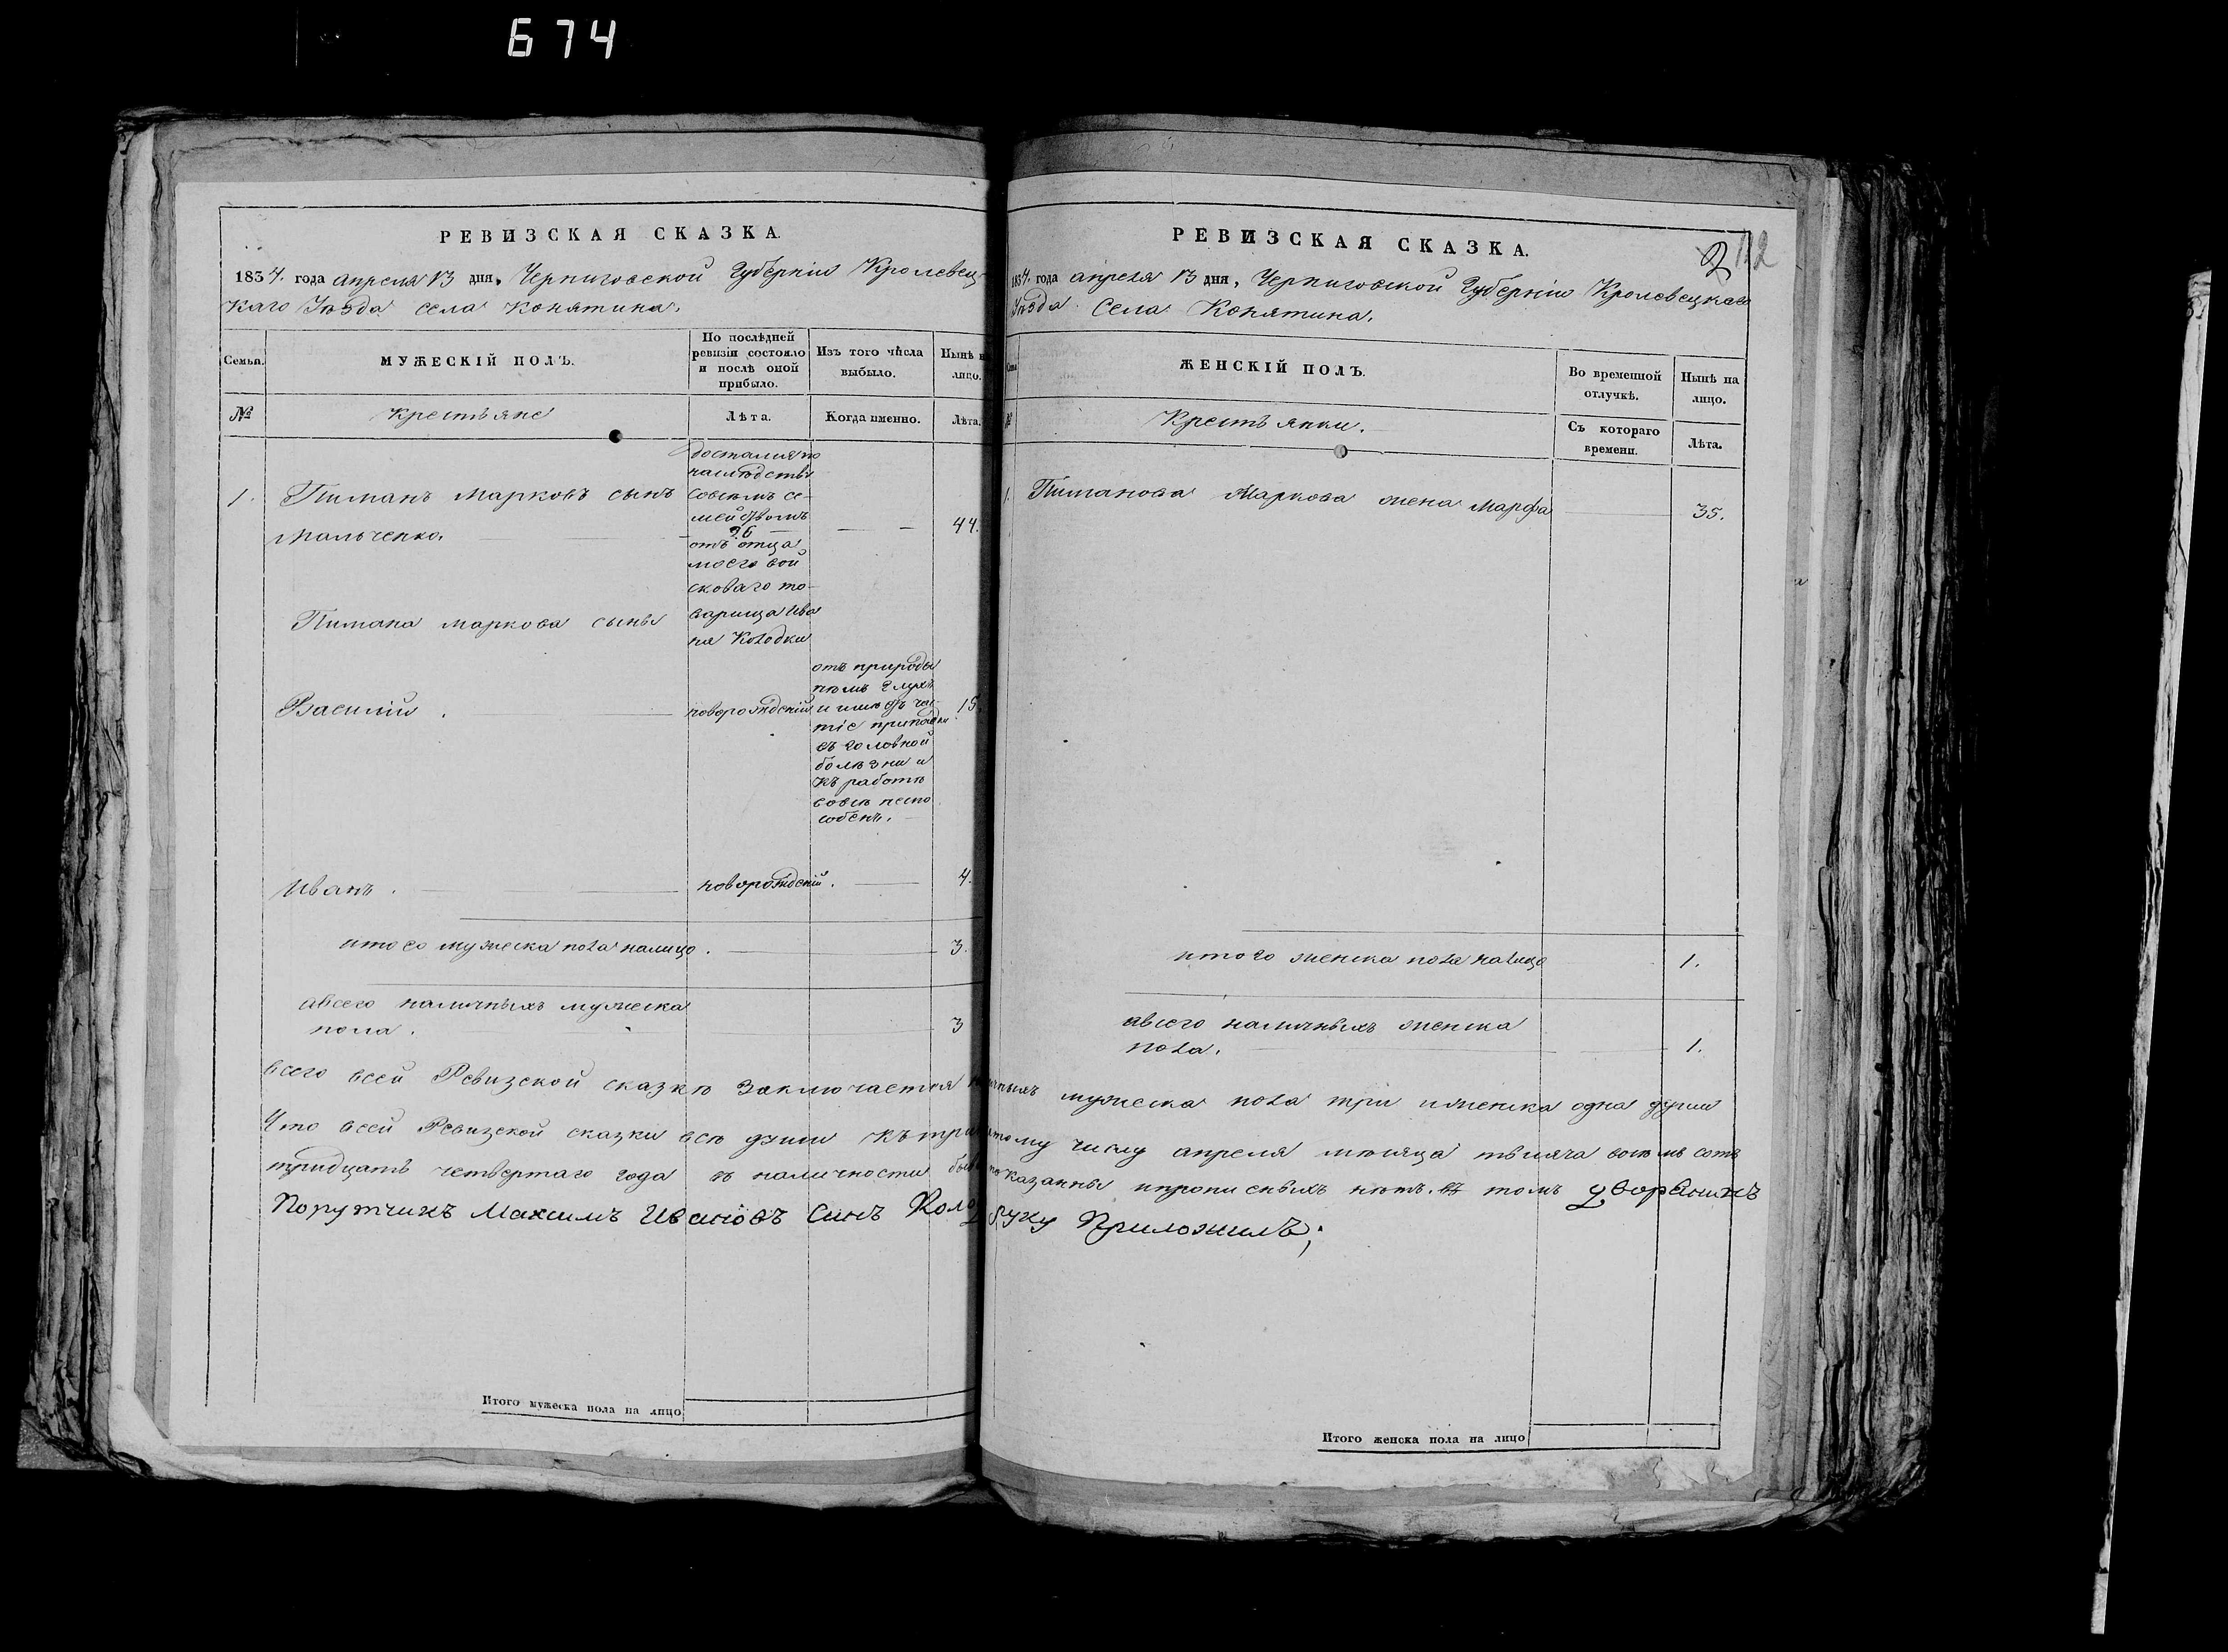 674
РЕВИЗСКАЯ СКАЗКА.
1834. года апреля 13 дня, Черниговской Губерніи Кролевец-
каго Уѣзда села Конятина.
Семьи.
МУЖЕСКІЙ ПОЛЪ.
По послѣдней
ревизіи состояло
и послѣ оной
прибыло.
Изъ того числа
выбыло.
Нынѣ н
лицо.
№
крестьяне
Лѣта.
Когда именно.
Лѣта.
1.
Пиманъ Марковъ сынъ
Мальченко.
достался по
наслѣдству
совсемъ се-
мействомъ
26
отъ отца
моего вой
сковаго то-
варища Ива
на Колодки
44.
Пимана Маркова сыны
Василій.
новорожденій
отъ природы
нѣмъ глухъ
и имѣетъ час-
тіе припадки
съ головной
болѣзни и
къ работѣ
совсѣ неспо
собенъ.
15.
Иванъ.
новорожденій.
4.
итого мужеска пола налицо.
3.
авсего наличныхъ мужеска
пола.
3
РЕВИЗСКАЯ СКАЗКА.
2
112
1834. года апреля 13 дня, Черниговской Губерніи Кролевецкаго
Уѣзда Села Конятина.
ЖЕНСКІЙ ПОЛЪ.
Во временной
отлучкѣ.
Нынѣ на
лицо.
№
Крестьянки.
Съ котораго
времени.
Лѣта.
1.
Пиманова Маркова жена Марфа
35.
итого женска пола налицо
1.
авсего наличныхъ женска
пола.
1.
всего всей Ревизской сказкѣ заключается мужеска пола три иженска одна души
Что всей Ревизской сказки всѣ души числу апреля мѣсяца тысяча восѣмъ сотъ
тридцать четвертаго года въ наличности показанны ипрописныхъ нѣтъ. въ томъ дворянинъ
Поручикъ Максимъ Ивановъ Синъ руку Приложилъ;
Итого мужеска пола на лицо
Итого женска пола на лицо